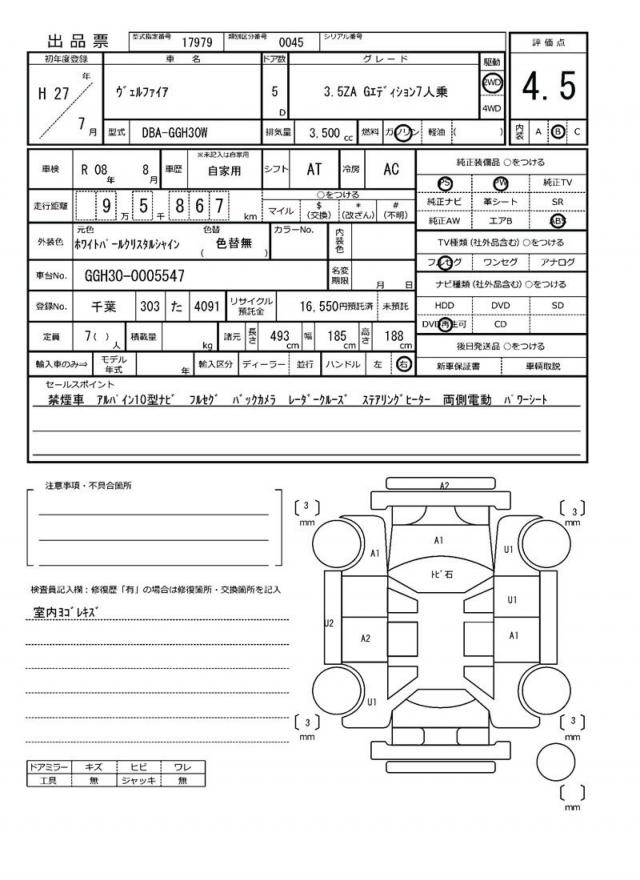 出品票 型式指定番号 17979 類別区分番号 0045 シリアル番号
初年度登録 車 名 ドア数 グレード 駆動 評価点
H 27 年 7 月 ヴェルファイア 5 D 3.5ZA Gエディション7人乗 2WD 4WD 4.5
型式 DBA-GGH30W 排気量 3,500 cc 燃料 ガソリン 軽油 ( ) 内装 A B C
車検 R 08 年 8 月 車歴 ※未記入は自家用 自家用 シフト AT 冷房 AC
走行距離 9 万 5 千 8 6 7 km ○をつける マイル $ (交換) * (改ざん) # (不明)
外装色 元色 ホワイトパールクリスタルシャイン 色替 ( 色替無 ) カラーNo. 内装色
車台No. GGH30-0005547 名変期限 月 日
登録No. 千葉 303 た 4091 リサイクル預託金 16,550円預託済 未預託
定員 7( ) 人 積載量 kg 諸元 長さ 493 cm 幅 185 cm 高さ 188 cm
輸入車のみ⇒ モデル年式 年 輸入区分 ディーラー 並行 ハンドル 左 右
純正装備品 ○をつける
PS PW 純正TV
純正ナビ 革シート SR
純正AW エアB ABS
TV種類(社外品含む) ○をつける
フルセグ ワンセグ アナログ
ナビ種類(社外品含む) ○をつける
HDD DVD SD
DVD再生可 CD
後日発送品 ○をつける
新車保証書 車輌取説
セールスポイント
禁煙車 アルパイン10型ナビ フルセグ バックカメラ レーダークルーズ ステアリングヒーター 両側電動 パワーシート
注意事項・不具合箇所
検査員記入欄:修復歴「有」の場合は修復箇所・交換箇所を記入
室内ヨゴレキズ
ドアミラー キズ ヒビ ワレ
工具 無 ジャッキ 無
A2
[ 3 ] mm
[ 3 ] mm
A1
A1
U1
トビ石
U1
U2
A2
A1
U1
[ 3 ] mm
[ 3 ] mm
[ ] mm